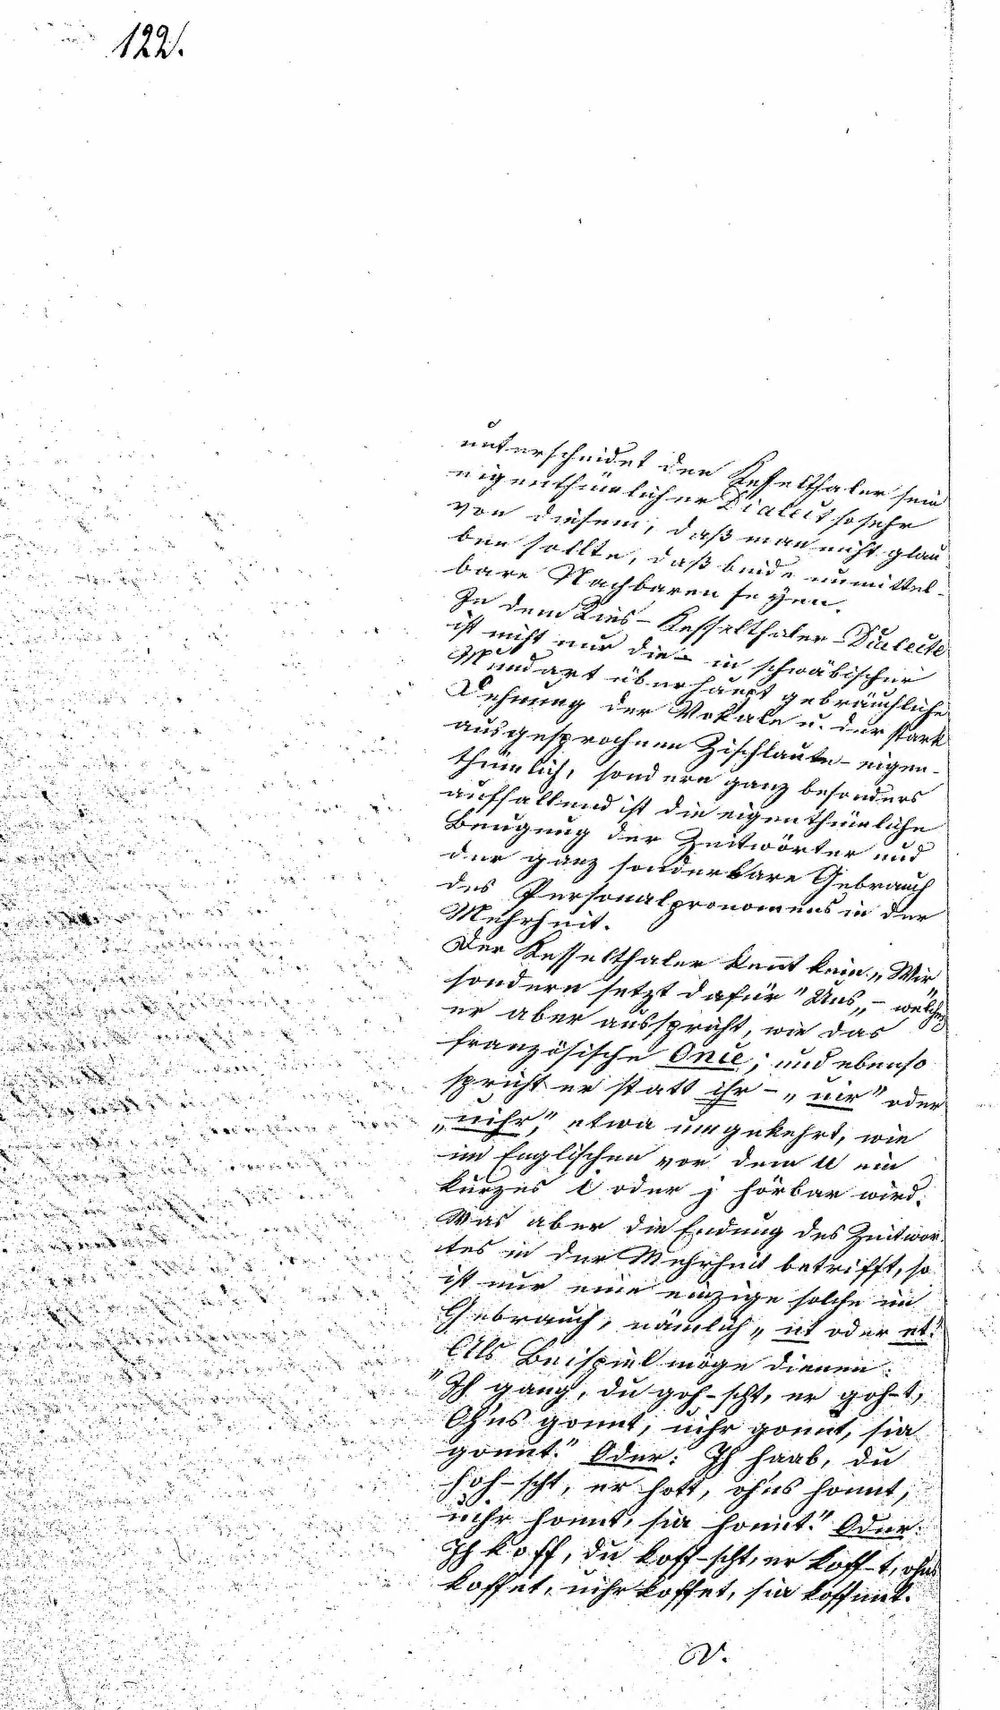 122.
unterscheidet den Kesselthaler sein
eigenthümlicher Dialect so sehr
von diesem, daß man nicht glau-
ben sollte, daß beide unmittel-
bare Nachbaren seyen.
In dem Ries-Kesselthaler-Dialecte
ist nicht nur die - in schwäbischer
Mundart überhaupt gebräuchliche
Dehnung der Vokale u. der stark
ausgesprochnen Zischlaute - eigen-
thümlich, sondern ganz besonders
auffallend ist die eigenthümliche
Beugung der Zeitwörter und
der ganz sonderbare Gebrauch
des Personalpronomens in der
Mehrheit.
Der Kesselthaler kennt kein „Wir"
sondern setzt dafür "Uns„ - welches
er aber ausspricht, wie das
französische Once; und ebenso
spricht er statt ihr - „uir" oder
„uihr," etwa umgekehrt, wie
im Englischen vor dem u ein
kurzes i oder j hörbar wird.
Was aber die Endung des Zeitwor-
tes in der Mehrheit betrifft, so
ist nur eine einzige solche im
Gebrauch, nämlich „nt oder et."
Als Beispiel möge dienen:
"Ich gang, du goh-scht, er goh-t,
Oh'ns gonnt, uihr gonnt, sia
gonnt." Oder: Ich haab, du
hoh-scht, er hott, oh'ns honnt,
uihr honnt, sia honnt." Oder:
Ich koff, du koff-scht, er koff-t, ohns
koffet, uihr koffet, sia koffnet.
V.